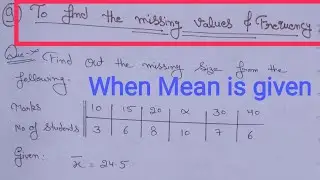 9) To find the missing values & Frequency
Que:- Find Out the missing size from the
following:-
When Mean is given
Marks 10 15 20 x 30 40
No of students 3 6 8 10 7 6
Given:
x̄ = 24.5